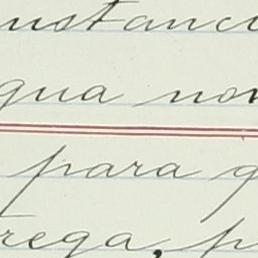 ustanci
gua nov
para q
rega, p